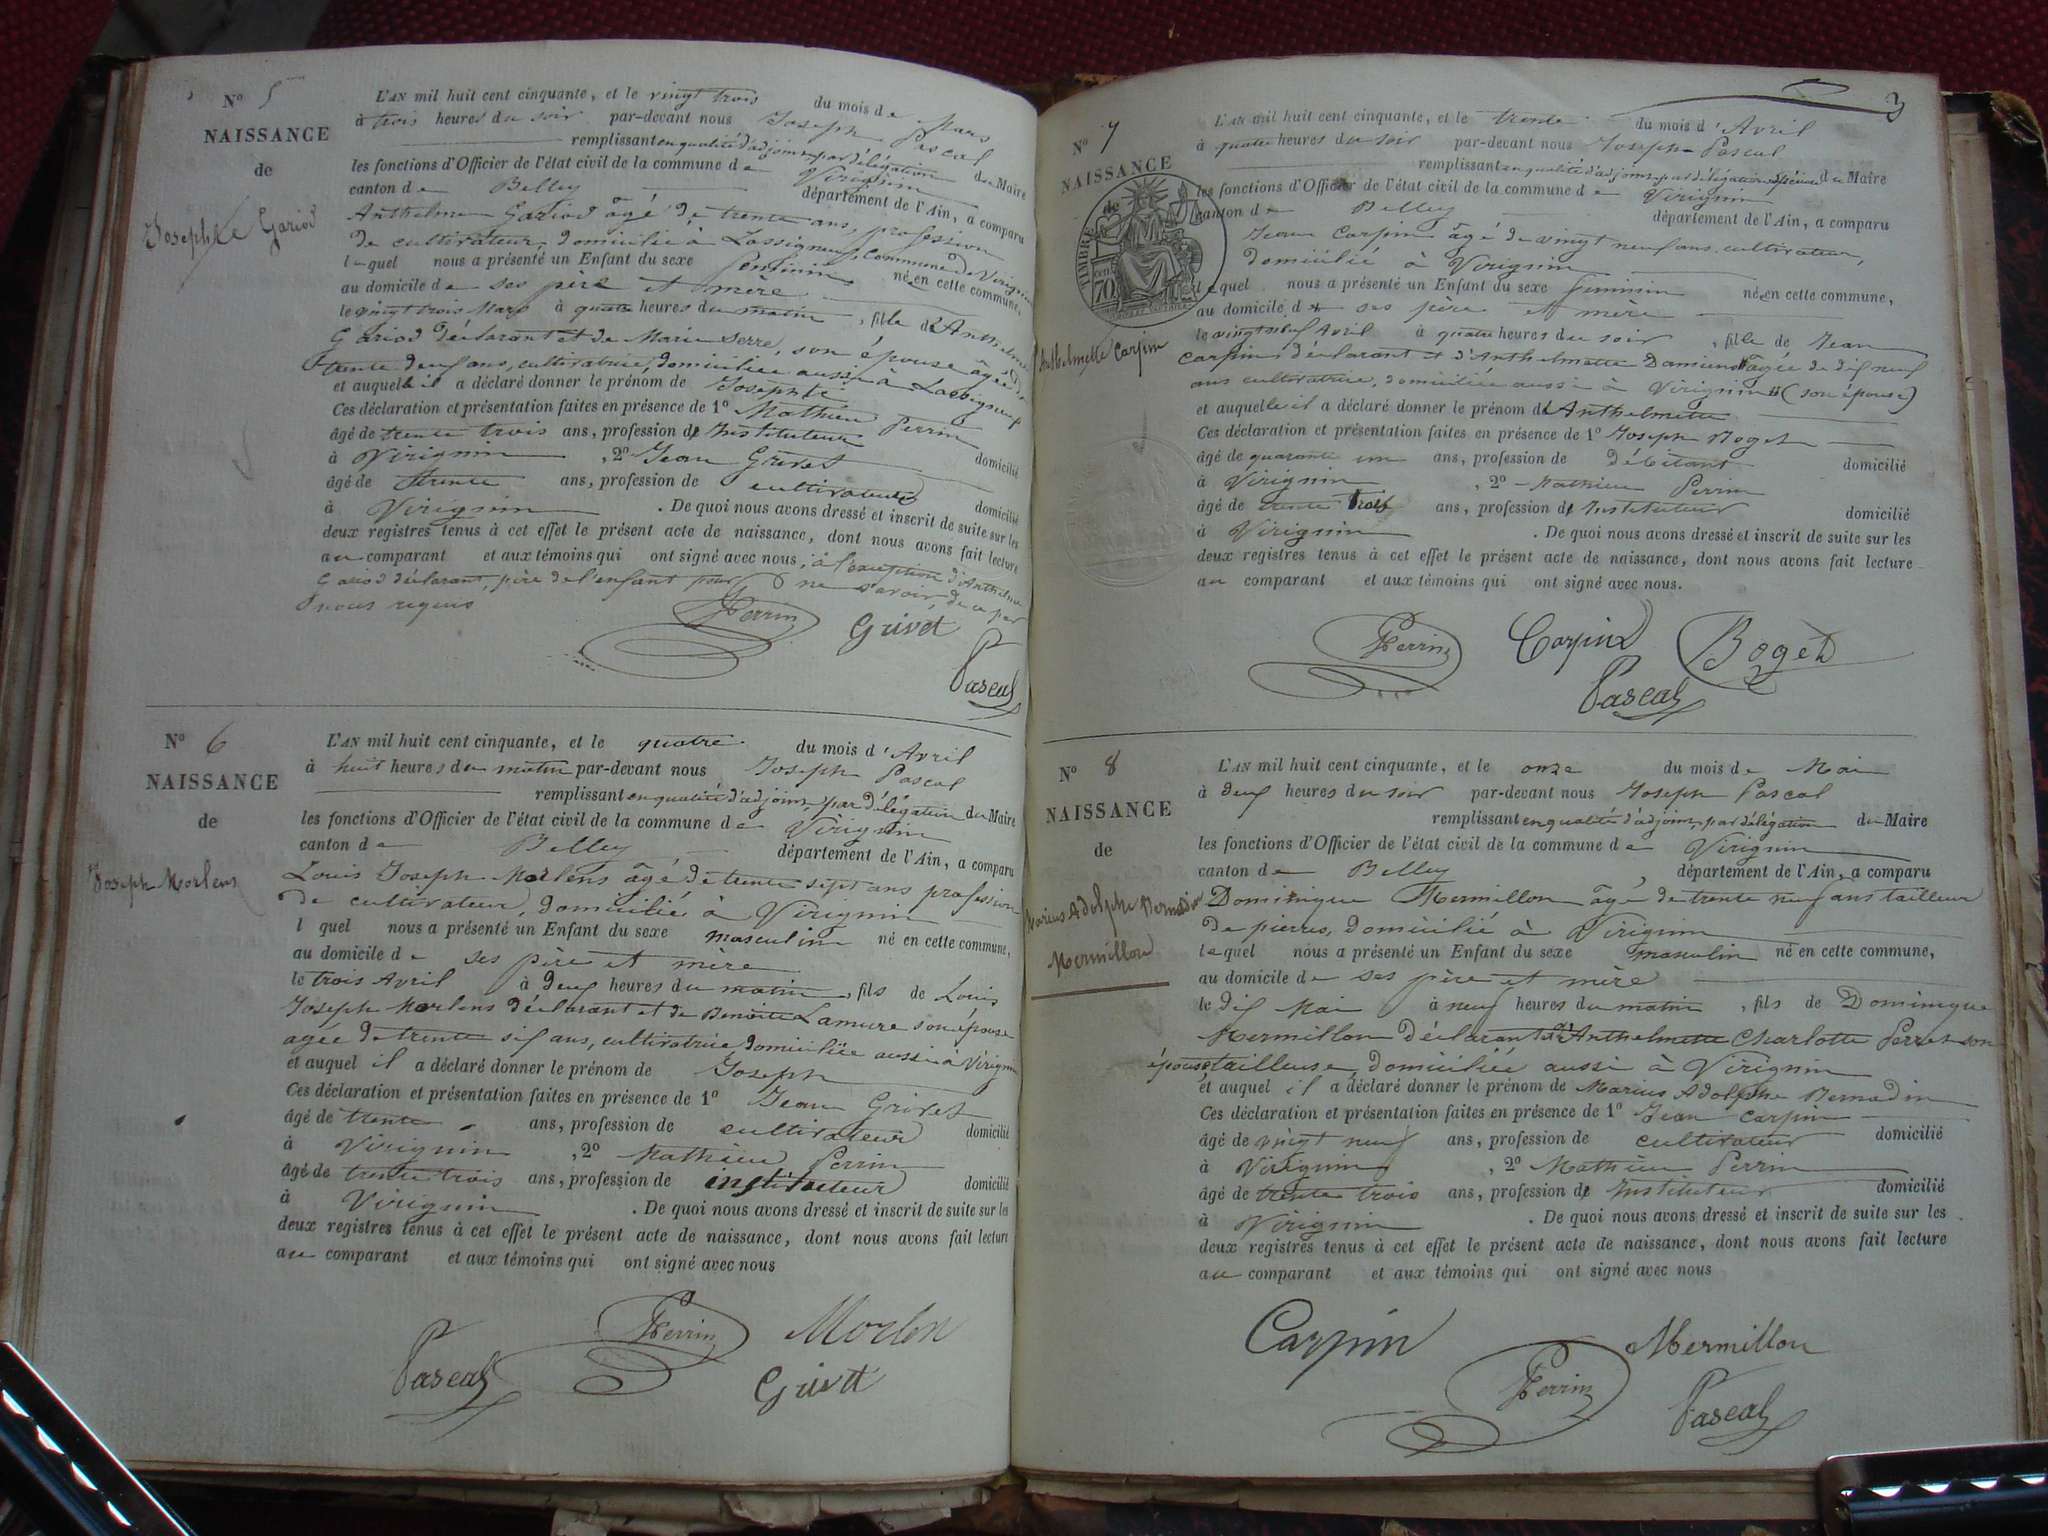 N° 5
NAISSANCE
de
Josephte Gariod
L'AN mil huit cent cinquante, et le vingt trois du mois de Mars
à trois heures du soir par-devant nous Joseph Pascal
remplissant en qualité d'adjoint, par délégation du Maire
les fonctions d'Officier de l'état civil de la commune de Virignin
canton de Belley département de l'Ain, a comparu
Anthelme Gariod âgé de trente ans, profession
de cultivateur, domicilié à Lassignieu, commune de Virignin
lequel nous a présenté un Enfant du sexe féminin né en cette commune,
au domicile de ses père et mère
le vingt trois Mars à quatre heures du matin, fille d'Anthelme
Gariod déclarant et de Marie Serre, son épouse âgée de
trente deux ans, cultivatrice, domiciliée aussi à Lassignieu
et auquelle il a déclaré donner le prénom de Josephte
Ces déclaration et présentation faites en présence de 1° Mathieu Perrin
âgé de trente trois ans, profession d'Instituteur domicilié
à Virignin, 2° Jean Grivet
âgé de trente ans, profession de cultivateur domicilié
à Virignin. De quoi nous avons dressé et inscrit de suite sur les
deux registres tenus à cet effet le présent acte de naissance, dont nous avons fait lecture
au comparant et aux témoins qui ont signé avec nous, à l'exception d'Anthelme
Gariod déclarant, père de l'enfant pour ne savoir, de ce par
nous requis
Perrin Grivet
Pascal
N° 6
NAISSANCE
de
Joseph Morlens
L'AN mil huit cent cinquante, et le quatre du mois d'Avril
à huit heures du matin par-devant nous Joseph Pascal
remplissant en qualité d'adjoint, par délégation du Maire
les fonctions d'Officier de l'état civil de la commune de Virignin
canton de Belley département de l'Ain, a comparu
Louis Joseph Morlens âgé de trente sept ans profession
de cultivateur, domicilié à Virignin
l quel nous a présenté un Enfant du sexe masculin né en cette commune,
au domicile de ses père et mère
le trois Avril à deux heures du matin, fils de Louis
Joseph Morlens déclarant et de Benoite Lamure son épouse
agée de trente six ans, cultivatrice domiciliée aussi à Virignin
et auquel il a déclaré donner le prénom de Joseph
Ces déclaration et présentation faites en présence de 1° Jean Grivet
âgé de trente ans, profession de cultivateur domicilié
à Virignin, 2° Mathieu Perrin
âgé de trente trois ans, profession de instituteur domicilié
à Virignin. De quoi nous avons dressé et inscrit de suite sur les
deux registres tenus à cet effet le présent acte de naissance, dont nous avons fait lecture
au comparant et aux témoins qui ont signé avec nous
Perrin Morlen
Pascal Grivet
3
N° 7
NAISSANCE
de
TIMBRE
70
Anthelmette Carpin
L'AN mil huit cent cinquante, et le trente du mois d'Avril
à quatre heures du soir par-devant nous Joseph Pascal
remplissant en qualité d'adjoint, par délégation spéciale du Maire
les fonctions d'Officier de l'état civil de la commune de Virignin
canton de Belley département de l'Ain, a comparu
Jean Carpin âgé de vingt neuf ans cultivateur,
domicilié à Virignin
lequel nous a présenté un Enfant du sexe féminin né en cette commune,
au domicile de ses père et mère
le vingt neuf Avril à quatre heures du soir, fille de Jean
Carpin déclarant et d'Anthelmette Damiens âgée de dix neuf
ans cultivatrice, domiciliée aussi à Virignin (son épouse)
et auquelle il a déclaré donner le prénom d'Anthelmette
Ces déclaration et présentation faites en présence de 1° Joseph Boget
âgé de quarante un ans, profession de débitant domicilié
à Virignin, 2° Mathieu Perrin
âgé de trente trois ans, profession d'Instituteur domicilié
à Virignin. De quoi nous avons dressé et inscrit de suite sur les
deux registres tenus à cet effet le présent acte de naissance, dont nous avons fait lecture
au comparant et aux témoins qui ont signé avec nous.
Perrin Carpin Boget
Pascal
N° 8
NAISSANCE
de
Marius Adolphe Bernadin
Mermillon
L'AN mil huit cent cinquante, et le onze du mois de Mai
à deux heures du soir par-devant nous Joseph Pascal
remplissant en qualité d'adjoint, par délégation du Maire
les fonctions d'Officier de l'état civil de la commune de Virignin
canton de Belley, département de l'Ain, a comparu
Dominique Mermillon âgé de trente neuf ans tailleur
de pierres, domicilié à Virignin
lequel nous a présenté un Enfant du sexe masculin né en cette commune,
au domicile de ses père et mère
le dix Mai à neuf heures du matin, fils de Dominique
Mermillon déclarant et d'Anthelmette Charlotte Perret son
épouse tailleuse, domiciliée aussi à Virignin
et auquel il a déclaré donner le prénom de Marius Adolphe Bernadin
Ces déclaration et présentation faites en présence de 1° Jean Carpin
âgé de vingt neuf ans, profession de cultivateur domicilié
à Virignin, 2° Mathieu Perrin
âgé de trente trois ans, profession d'Instituteur domicilié
à Virignin. De quoi nous avons dressé et inscrit de suite sur les
deux registres tenus à cet effet le présent acte de naissance, dont nous avons fait lecture
au comparant et aux témoins qui ont signé avec nous
Carpin Mermillon
Perrin Pascal